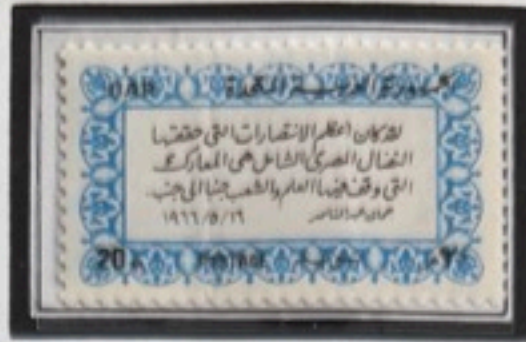 UAR الجمهورية العربية المتحدة
لقد كان أعظم الانتصارات التى حققتها
النضال المصرى الشامل هى المعارك
التى وقف فيها العلم والشعب جنبا الى جنب
جمال عبد الناصر ١٩٦٦/٥/١٦
20 POSTAGE بريد ٢٠